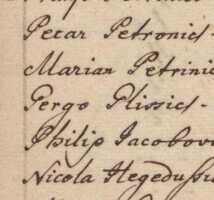 Pecar Petronics-
Marian Petrinic
Pergo Plissics-
Philip Jacobov
Nicola Hegedussi